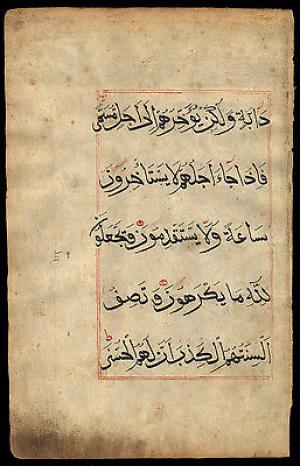 دَابَّةٍ وَلَكِنْ يُؤَخِّرُهُمْ إِلَى أَجَلٍ مُسَمًّى
فَإِذَا جَاءَ أَجَلُهُمْ لَا يَسْتَأْخِرُونَ
سَاعَةً وَلَا يَسْتَقْدِمُونَ وَيَجْعَلُونَ
لِلَّهِ مَا يَكْرَهُونَ وَتَصِفُ
أَلْسِنَتُهُمُ الْكَذِبَ أَنَّ لَهُمُ الْحُسْنَى